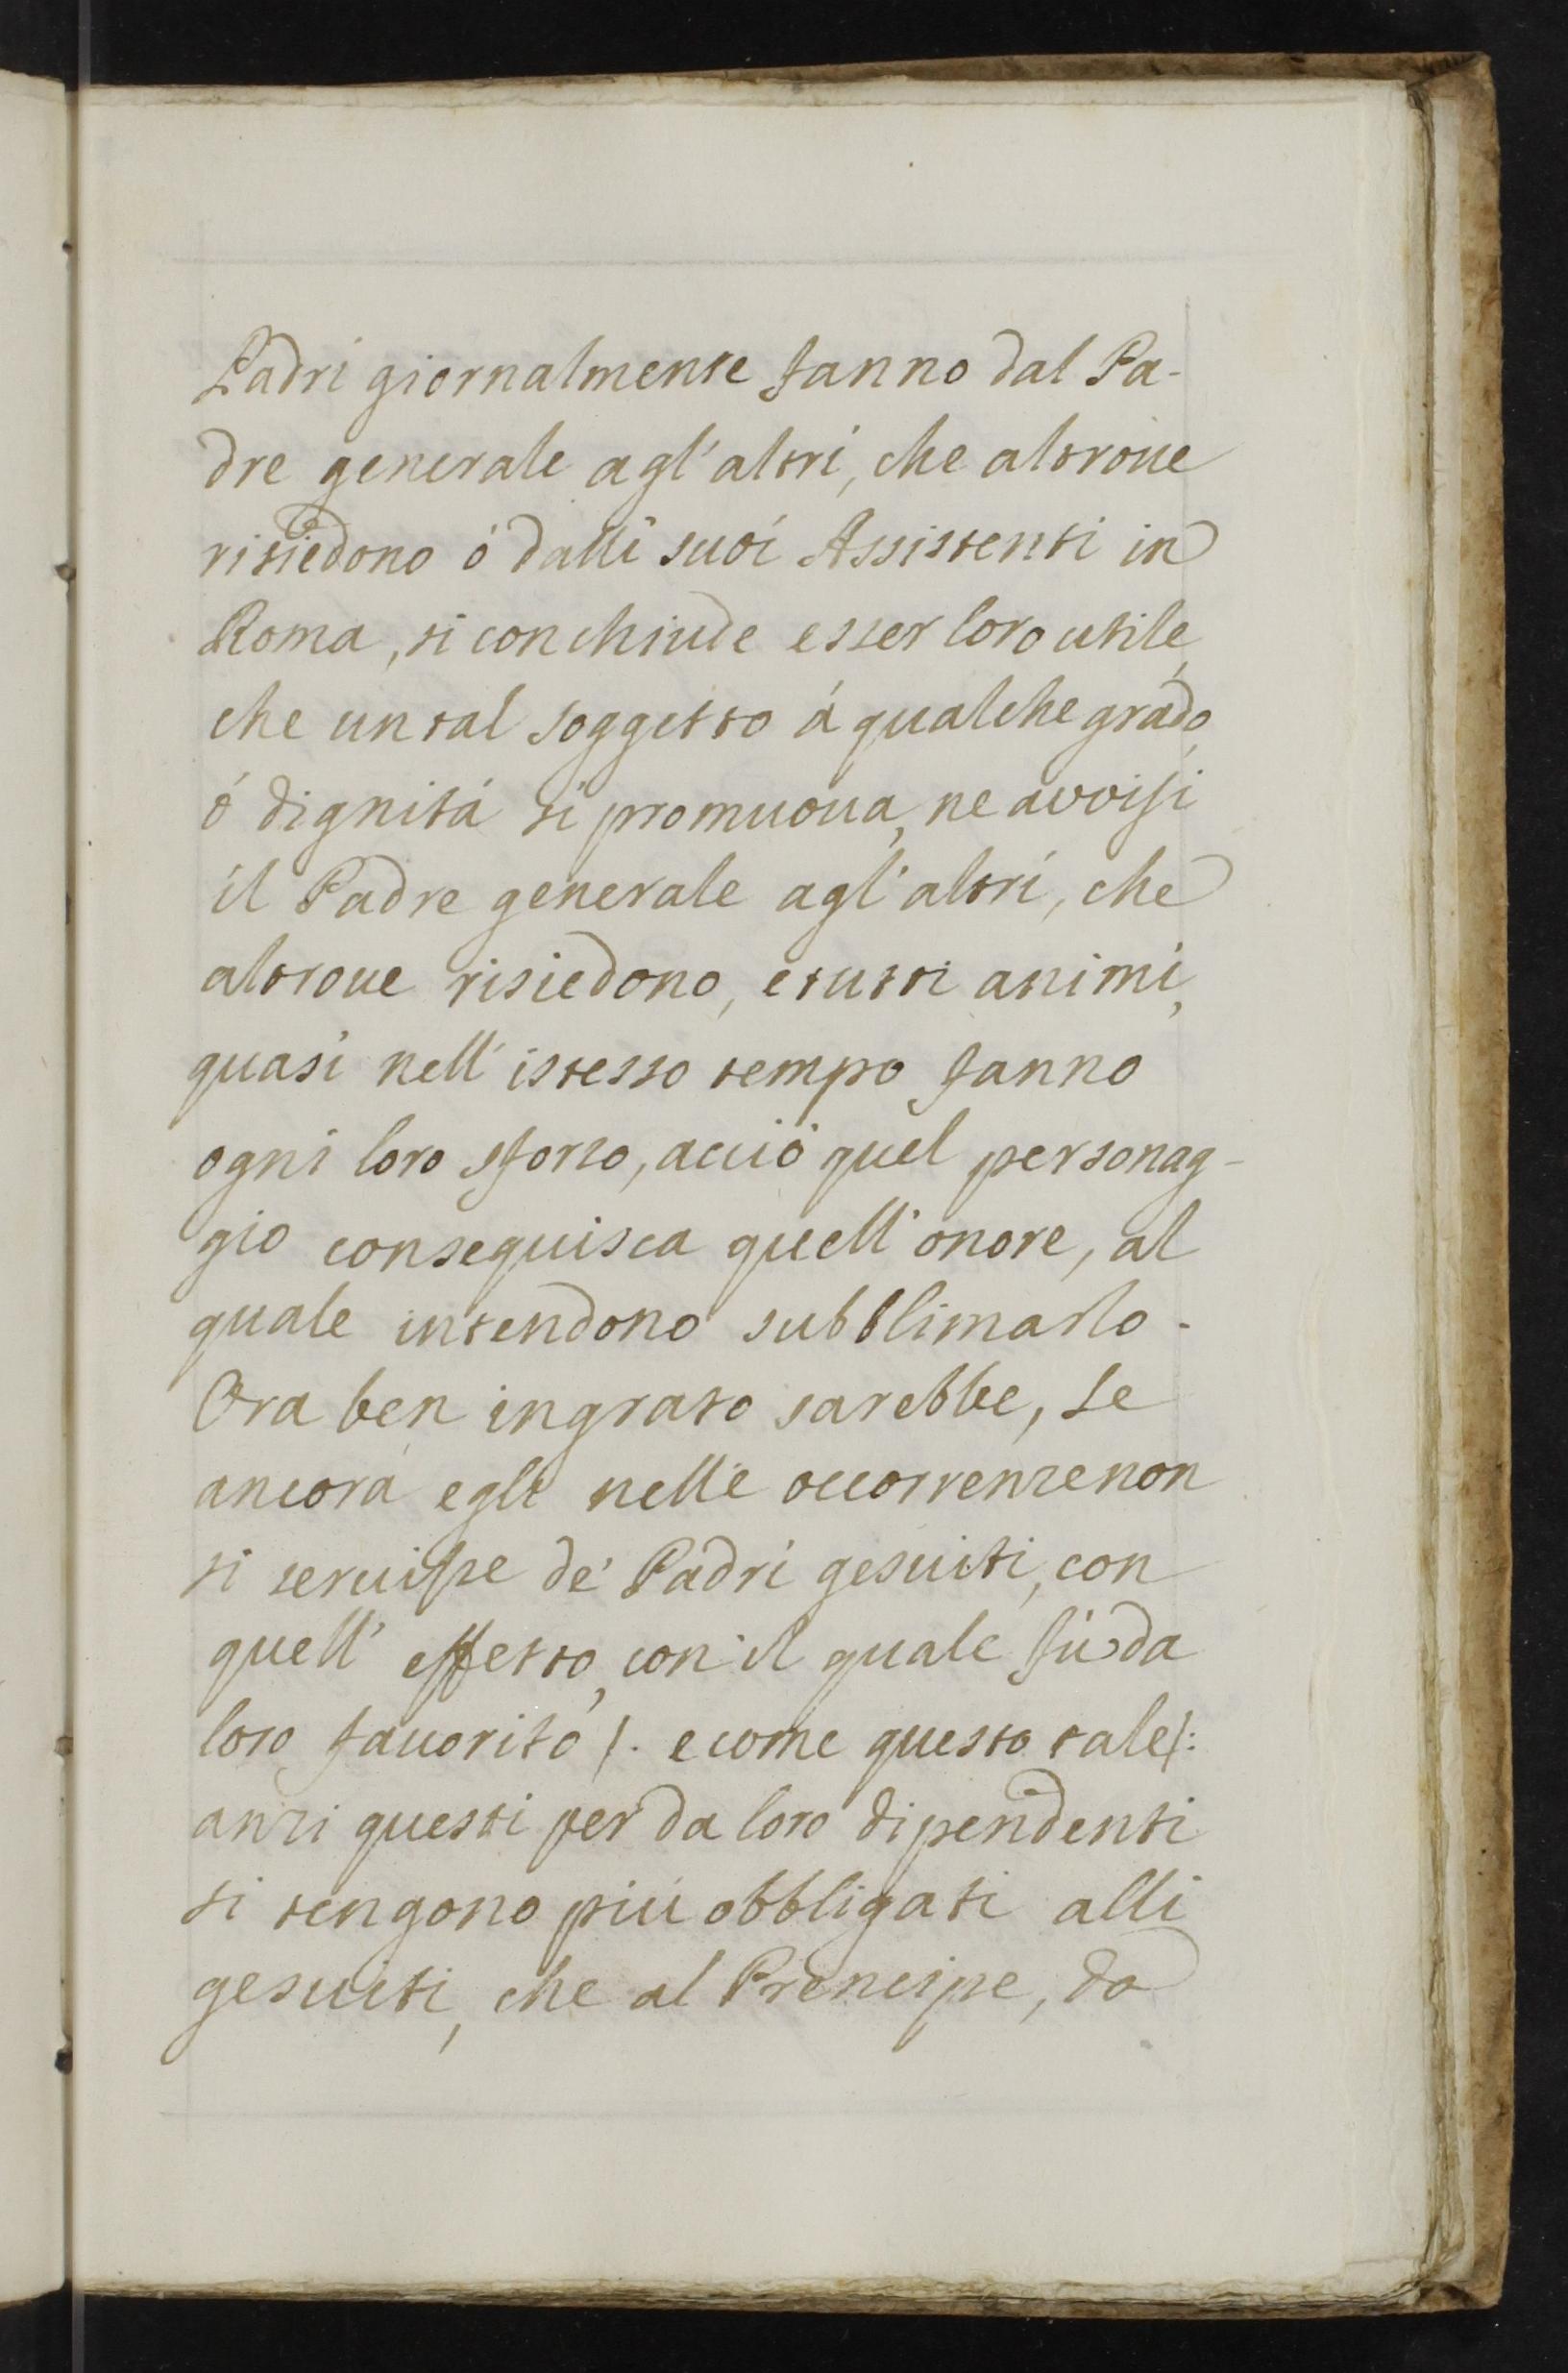 Padri giornalmente fanno dal Pa-
dre generale agl'altri, che altroue
risiedono ó dalli suoi Assistenti in
Roma, si conchiude esser loro utile,
che un tal soggetto á qualche grado,
ó dignitá si promuoua, ne avvisi
il Padre generale agl'altri, che
altroue risiedono, e tutti animi,
quasi nell'istesso tempo fanno
ogni loro sforzo, acció quel personag-
gio conseguisca quell'onore, al
quale intendono subblimarlo.
Ora ben ingrato sarebbe, se
ancora egli nelle occorrenze non
si seruisse de' Padri gesuiti, con
quell'effetto, con il quale fú da
loro fauorito /. e come questo tale /:
anzi questi per da loro dipendenti
si tengono piú obbligati alli
gesuiti, che al Prencipe, da